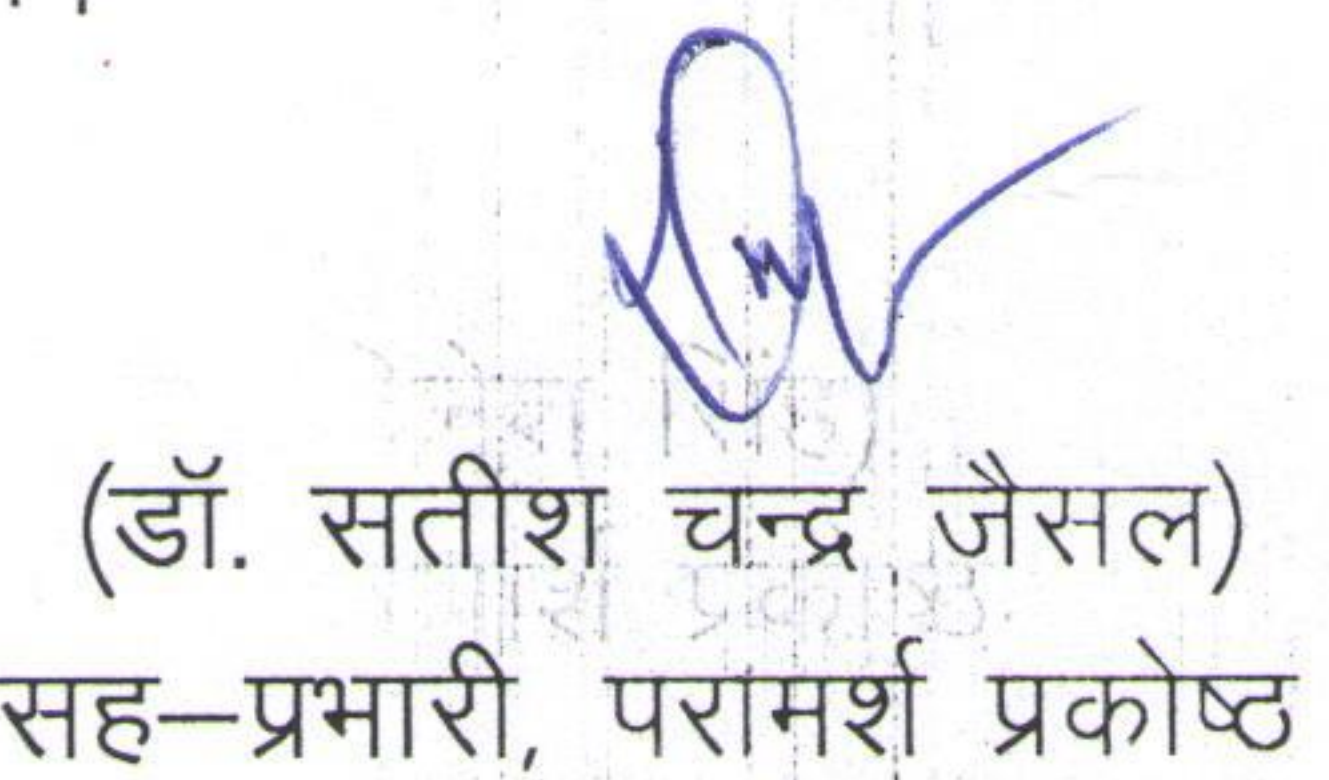 (डॉ. सतीश चन्द्र जैसल)
सह–प्रभारी, परामर्श प्रकोष्ठ